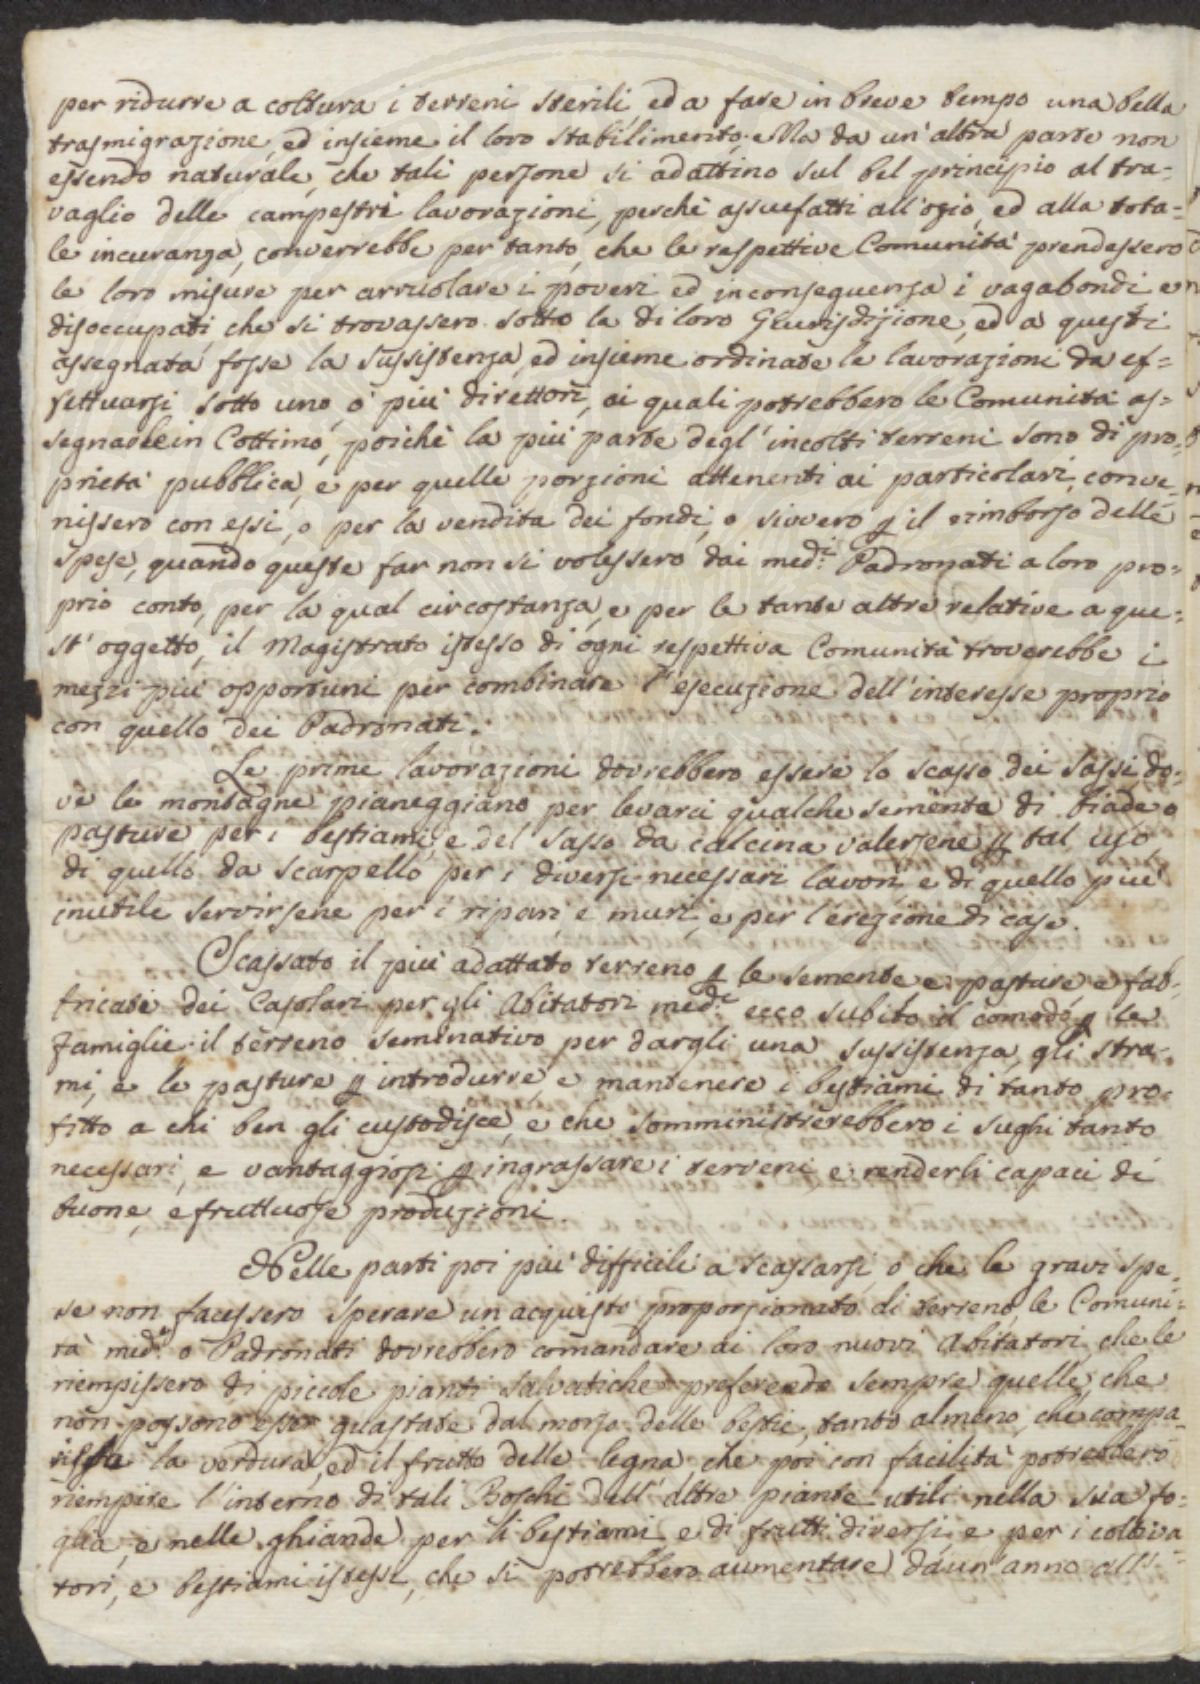 per ridurre a coltura i terreni sterili, ed a fare in breve tempo una bella
trasmigrazione, ed insieme il loro stabilimento. Ma da un' altra parte non
essendo naturale, che tali persone si adattino sul bel principio al tra=
vaglio delle campestri lavorazioni, perchè assuefatti all'ozio, ed alla tota=
le incuranza, converrebbe per tanto, che le respettive Comunità prendessero
le loro misure per arruolare i poveri ed inconseguenza i vagabondi e
disoccupati, che si trovassero sotto la di loro Giurisdizione, ed a questi
assegnata fosse la sussistenza, ed insieme ordinate le lavorazioni da ef=
fettuarsi sotto uno, o più direttori, ai quali potrebbero le Comunità as=
segnarle in Cottimo, poichè la più parte degl' incolti terreni sono di pro=
prietà pubblica, e per quelle porzioni attenenti ai particolari, conve=
nissero con essi, o per la vendita dei fondi, o sivvero p il rimborso delle
spese, quando queste far non si volessero dai med:i Padronati a loro pro=
prio conto, per la qual circostanza, e per le tante altre relative a que=
st' oggetto, il Magistrato istesso di ogni respettiva Comunità troverebbe i
mezzi più opportuni per combinare l' esecuzione dell' interesse proprio
con quello dei Padronati.
Le prime lavorazioni dovrebbero essere lo scasso dei sassi do=
ve le montagne pianeggiano per levarci qualche sementa di biade o
pasture per i bestiami, e del sasso da calcina valersene p tal uso,
di quello da scarpello per i diversi necessari lavori, e di quello più
inutile servirsene per i ripari, e muri, e per l'erezione di case.
Scassato il più adattato terreno p le semente e pasture, e fab=
bricati dei Casolari per gli Abitatori med:i ecco subito il comodo p le
famiglie il terreno seminativo per dargli una sussistenza, gli stra=
mi, e le pasture p introdurre, e mantenere i bestiami di tanto pro=
fitto a chi ben gli custodisce, e che somministrerebbero i sughi tanto
necessari, e vantaggiosi p ingrassare i terreni, e renderli capaci di
buone, e fruttuose produzioni
Nelle parti poi più difficili a scassarsi, o che le gravi spe=
se non facessero sperare un acquisto proporzionato di terreno, le Comuni=
tà med:e o Padronati dovrebbero comandare ai loro nuovi Abitatori, che le
riempissero di piccole pianti salvatiche preferendo sempre quelle, che
non possono esser guastate dal morso delle bestie, tanto almeno, che compa=
risse la verdura, ed il frutto delle legna, che poi con facilità potrebbero
riempire l' interno di tali Boschi dell' altre piante utili nella sua fo=
glia, e nelle ghiande per li bestiami, e di frutti diversi, e per i coltiva=
tori, e bestiami istessi, che si potrebbero aumentare da un' anno all'=